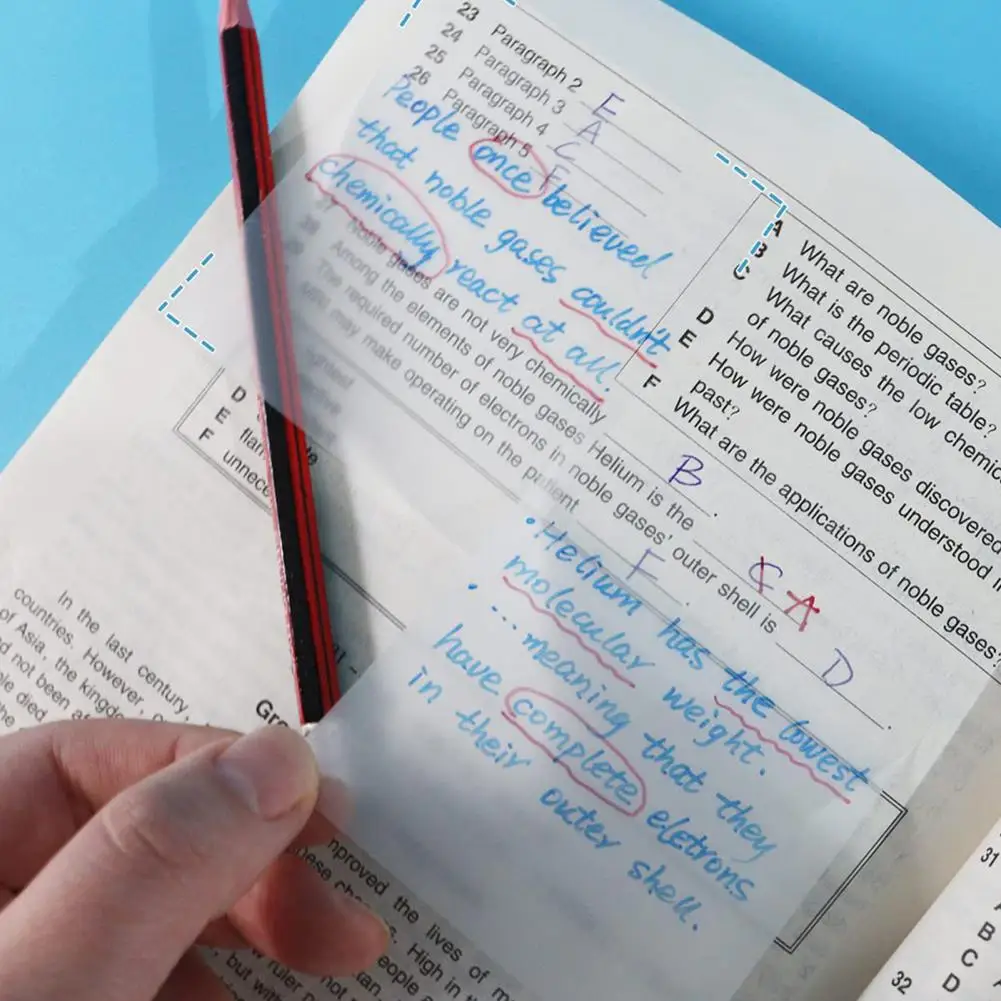 23 Paragraph 2 E
24 Paragraph 3 A
25 Paragraph 4 C
26 Paragraph 5 F
People once believed
that noble gases couldn't
chemically react at all.
27 Noble gases are not very chemically B.
28 Among the elements of noble gases Helium is the C A
The required number of electrons in noble gases' outer shell is D.
MRI may make operating on the patient F.
A What are noble gases?
B What is the periodic table?
C What causes the low chemic
of noble gases?
D How were noble gases discovered
E How were noble gases understood
past?
F What are the applications of noble gases?
D
E
F unnece
• Helium has the lowest
molecular weight.
• ... meaning that they
have complete eletrons
in their outer shell.
In the last century,
countries. However,
of Asia, the kingdo
d not been
died
the
Gr
nproved the lives of
High in
ruler
but
31
A
B
C
D
32